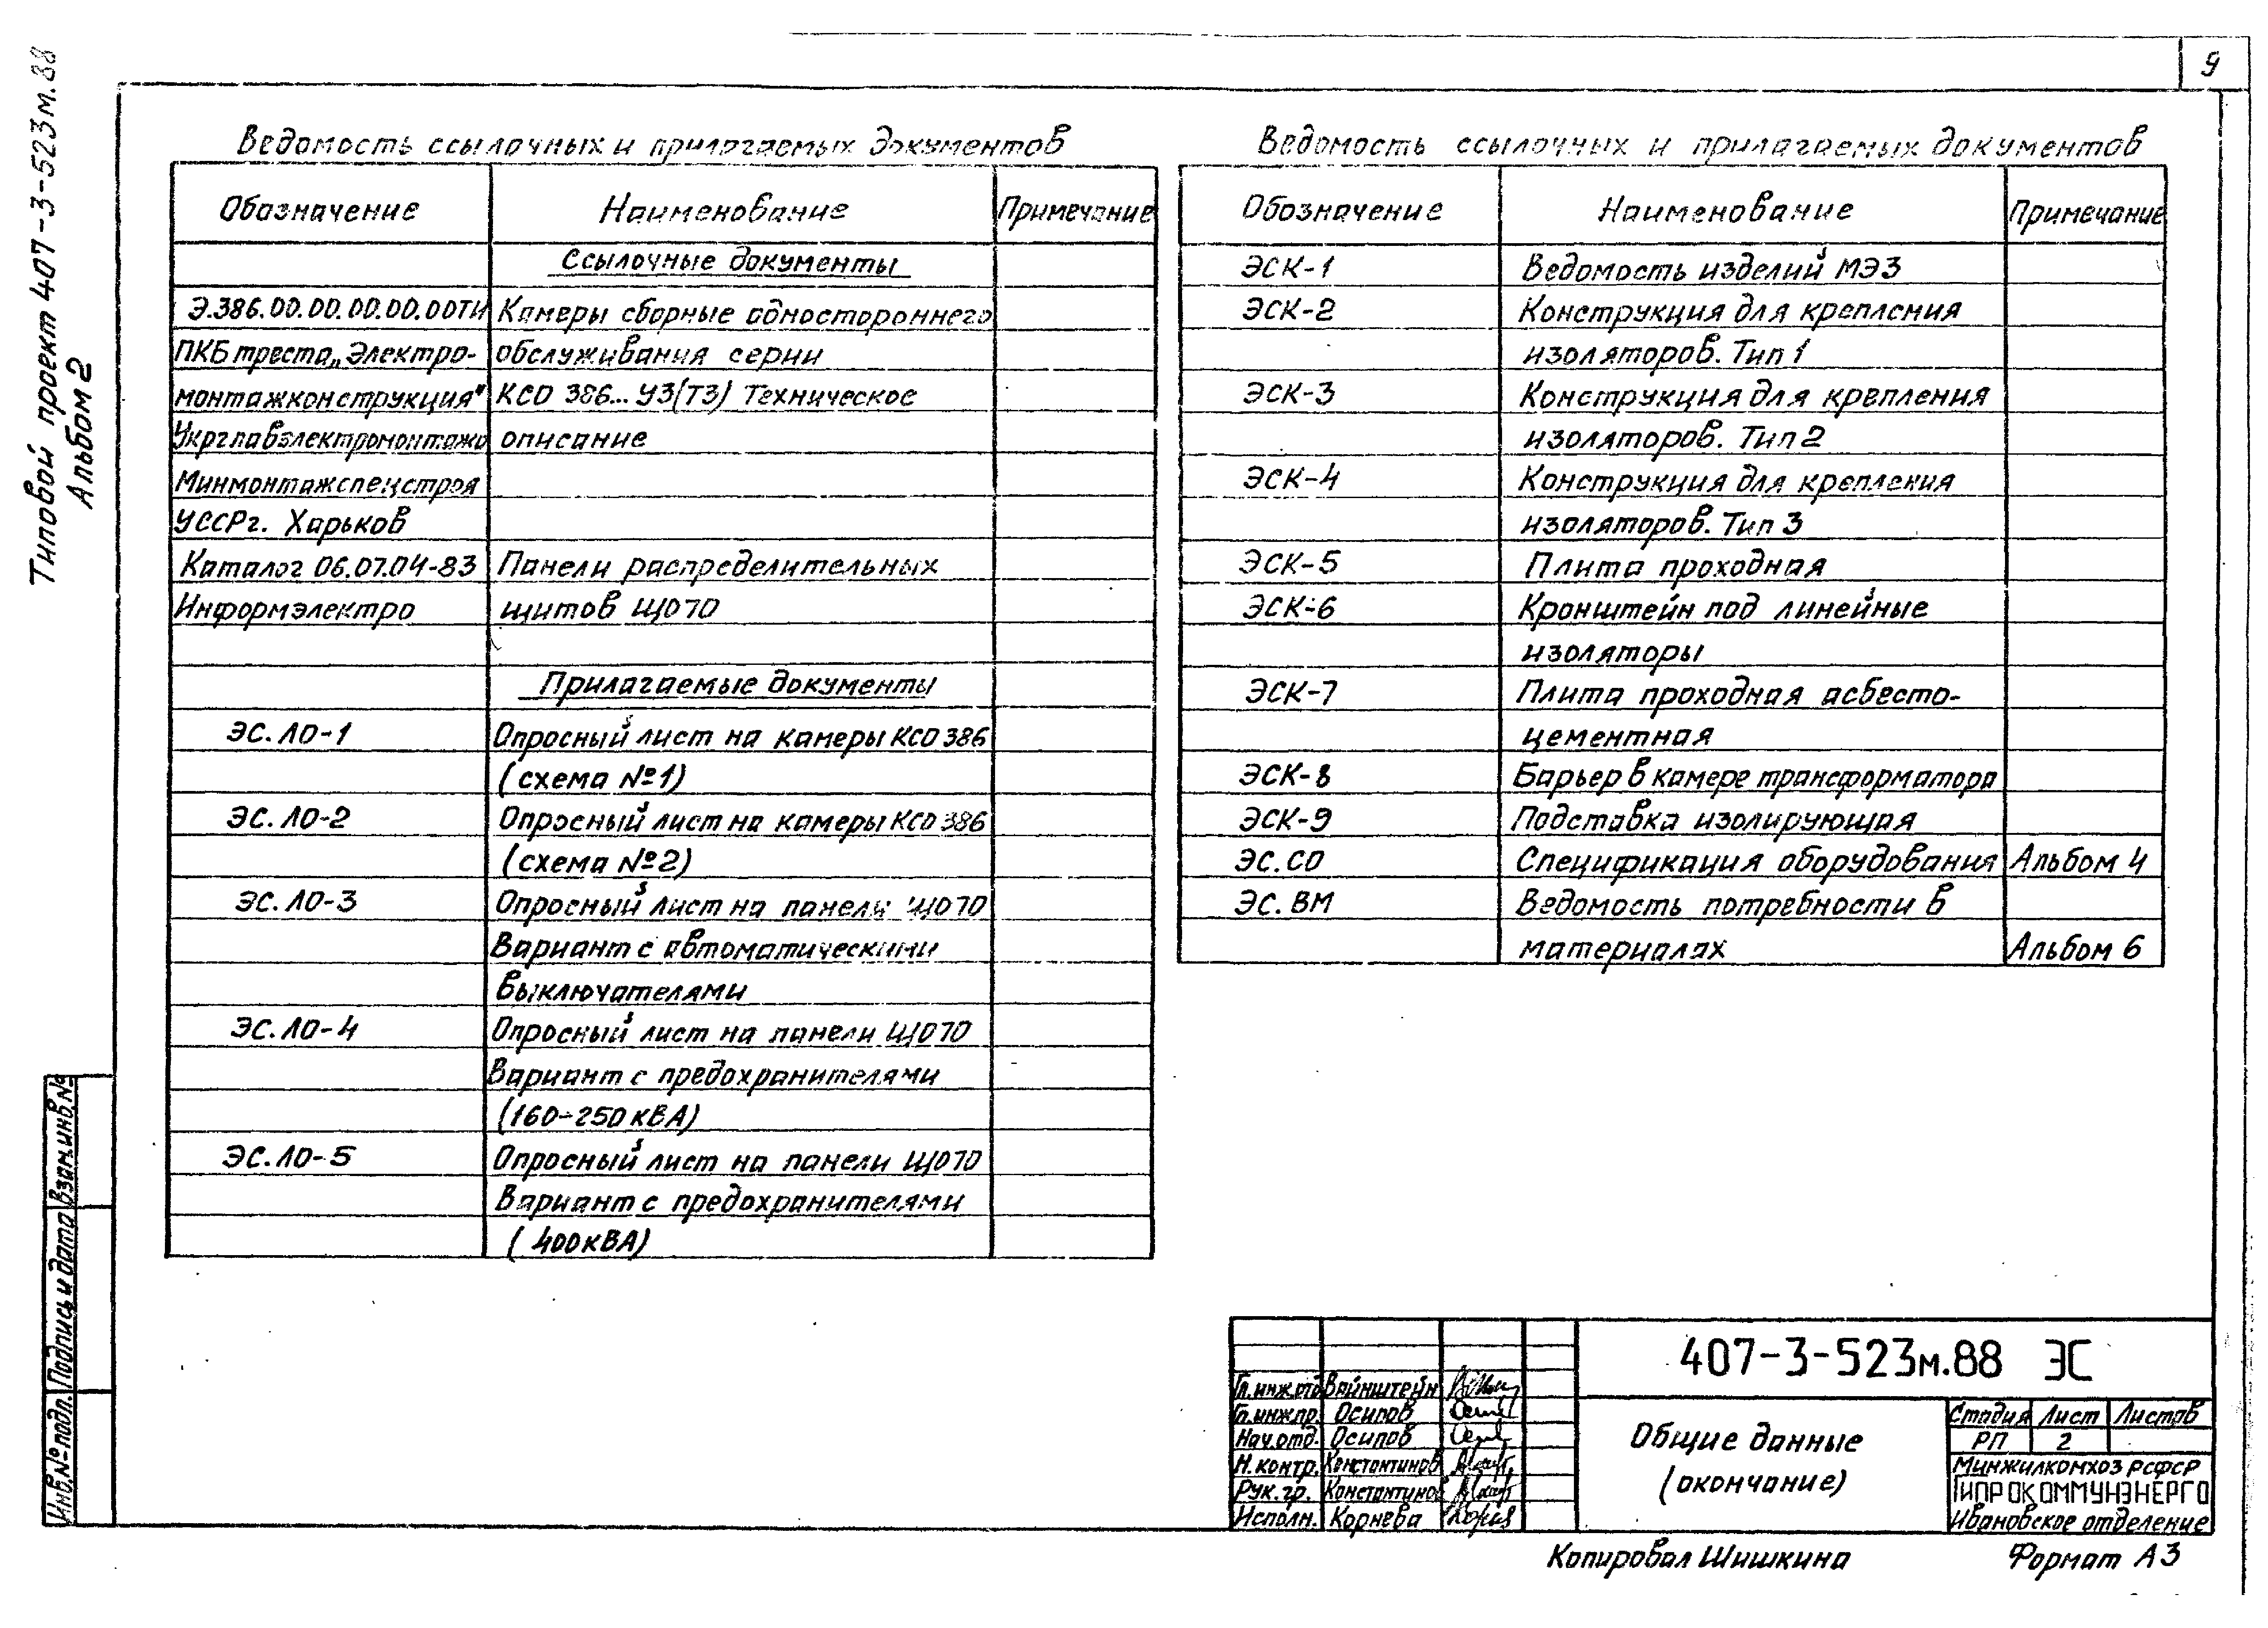 9
Типовой проект 407-3-523м.88
Альбом 2
Ведомость ссылочных и прилагаемых документов
Обозначение Наименование Примечание
Ссылочные документы
Э.386.00.00.00.00.00ТИ Камеры сборные одностороннего
ПКБ треста „Электро- обслуживания серии
монтажконструкция" КСО 386... У3(Т3) Техническое
Укрглавэлектромонтажа описание
Минмонтажспецстроя
УССР г. Харьков
Каталог 06.07.04-83 Панели распределительных
Информэлектро щитов ЩО70
Прилагаемые документы
ЭС.ЛО-1 Опросный лист на камеры КСО 386
(схема №1)
ЭС.ЛО-2 Опросный лист на камеры КСО 386
(схема №2)
ЭС.ЛО-3 Опросный лист на панели ЩО70
Вариант с автоматическими
выключателями
ЭС.ЛО-4 Опросный лист на панели ЩО70
Вариант с предохранителями
(160-250 кВА)
ЭС.ЛО-5 Опросный лист на панели ЩО70
Вариант с предохранителями
(400кВА)
Ведомость ссылочных и прилагаемых документов
Обозначение Наименование Примечание
ЭСК-1 Ведомость изделий МЭЗ
ЭСК-2 Конструкция для крепления
изоляторов. Тип 1
ЭСК-3 Конструкция для крепления
изоляторов. Тип 2
ЭСК-4 Конструкция для крепления
изоляторов. Тип 3
ЭСК-5 Плита проходная
ЭСК-6 Кронштейн под линейные
изоляторы
ЭСК-7 Плита проходная асбесто-
цементная
ЭСК-8 Барьер в камере трансформатора
ЭСК-9 Подставка изолирующая
ЭС.СО Спецификация оборудования Альбом 4
ЭС.ВМ Ведомость потребности в
материалах Альбом 6
Инв.№ подл. Подпись и дата Взам.инв.№
407-3-523м.88 ЭС
Гл.инж.отд Вайнштейн
Гл.инж.пр. Осипов
Нач.отд. Осипов
Н.контр. Константинов
Рук.гр. Константинов
Исполн. Корнева
Общие данные
(окончание)
Стадия Лист Листов
РП 2
Минжилкомхоз РСФСР
ГИПРОКОММУНЭНЕРГО
Ивановское отделение
Копировал Шишкина Формат А3